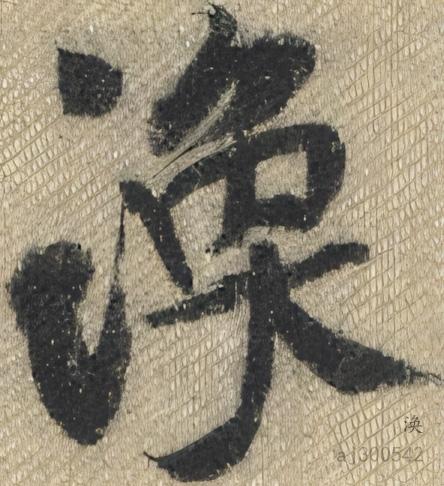 渙
渙
aj300542